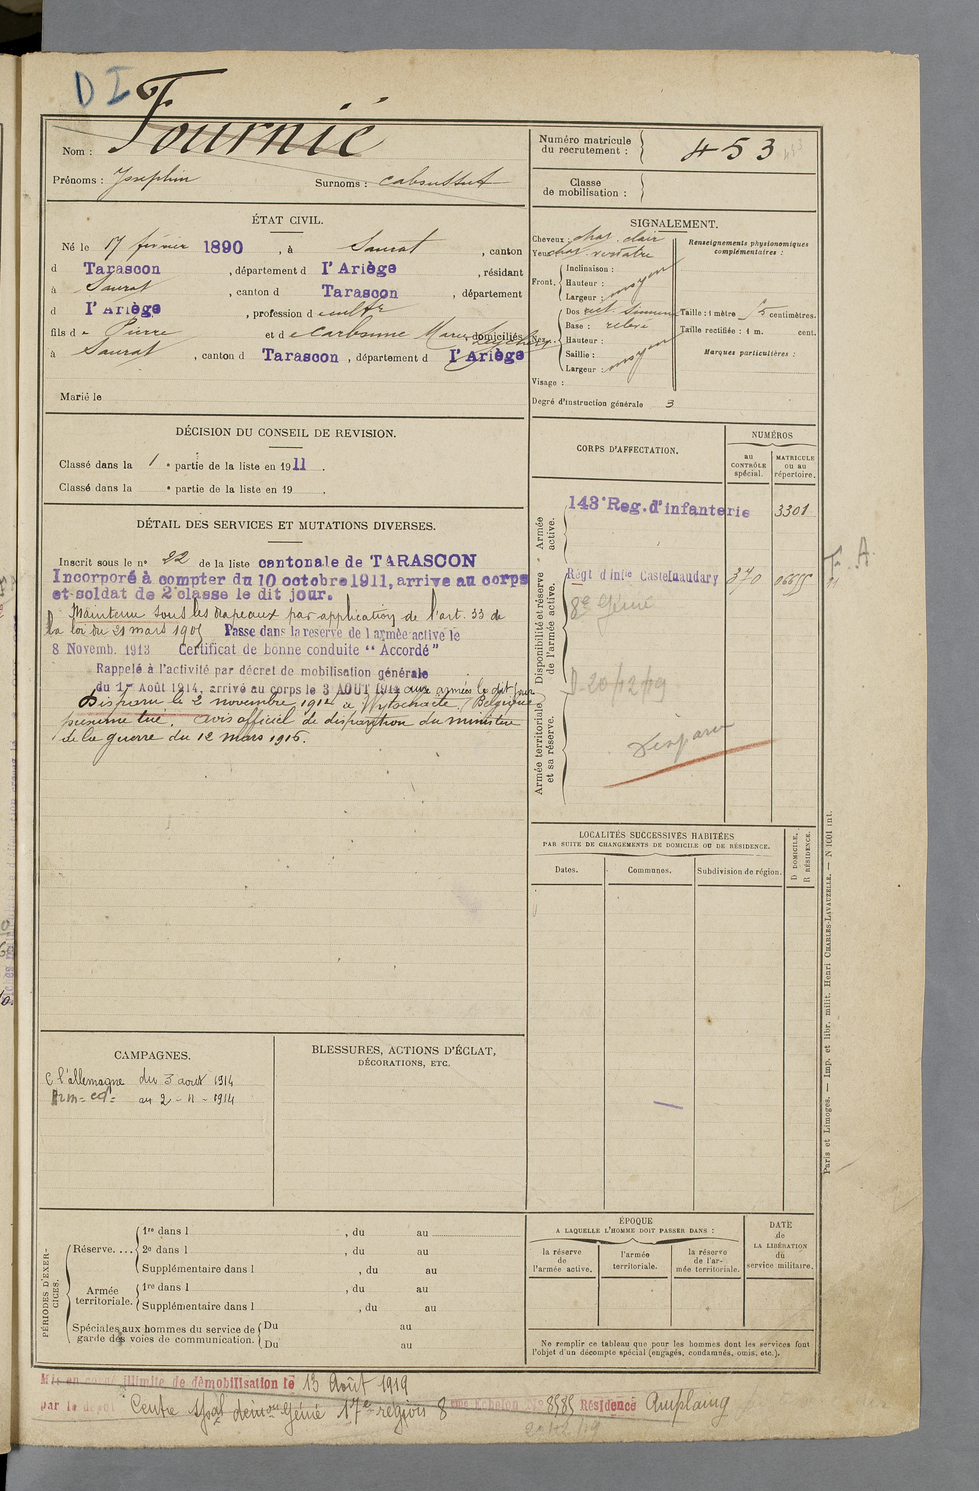 D I
Nom : Fournié
Prénoms : Josephin Surnoms :
Numéro matricule
du recrutement : 453
Classe
de mobilisation :
ÉTAT CIVIL.
Né le 17 février 1890 , à Saurat , canton
d Tarascon , département d l'Ariège , résidant
à Saurat , canton d Tarascon , département
d l'Ariège , profession de cultr
fils de Pierre et de Carbonne Marie , domiciliés
à Saurat , canton d Tarascon , département d l'Ariège
Marié le
SIGNALEMENT.
Cheveux : clair
Yeux
Front. Inclinaison :
Hauteur : moyen
Largeur :
Nez. Dos
Base : relevé
Hauteur :
Saillie : moyen
Largeur :
Visage :
Degré d'instruction générale 3
Renseignements physionomiques
complémentaires :
Taille : 1 mètre centimètres.
Taille rectifiée : 1 m. cent.
Marques particulières :
DÉCISION DU CONSEIL DE REVISION.
Classé dans la 1 e partie de la liste en 1911 .
Classé dans la e partie de la liste en 19 .
DÉTAIL DES SERVICES ET MUTATIONS DIVERSES.
Inscrit sous le n° 22 de la liste cantonale de TARASCON
Incorporé à compter du 10 octobre 1911, arrive au corps
et soldat de 2e classe le dit jour.
Maintenu sous les drapeaux par application de l'art. 33 de
la loi du 21 mars 1905 Passe dans la reserve de l'armée active le
8 Novemb. 1913 Certificat de bonne conduite “ Accordé ”
Rappelé à l'activité par décret de mobilisation générale
du 1er Août 1914, arrivé au corps le 3 AOUT 1914 aux armées le dit jour
Disparu le 2 novembre 1914 à Wytschaete (Belgique
présumé tué. avis officiel de disparition du ministre
de la guerre du 12 mars 1916.
CORPS D'AFFECTATION.
NUMÉROS
au
CONTRÔLE
spécial.
MATRICULE
ou au
répertoire.
Armée
active.
143e Reg. d'infanterie 3301
Disponibilité et réserve
de l'armée active.
Régt d'infie Castelnaudary 370
8e Génie
D. 20/12/19
F. A.
Armée territoriale
et sa réserve.
Disparu
LOCALITÉS SUCCESSIVES HABITÉES
PAR SUITE DE CHANGEMENTS DE DOMICILE OU DE RÉSIDENCE.
Dates. Communes. Subdivision de région.
D DOMICILE,
R RÉSIDENCE.
CAMPAGNES.
C l'allemagne du 3 aout 1914
au 2 - 11 - 1914
BLESSURES, ACTIONS D'ÉCLAT,
DÉCORATIONS, ETC.
PÉRIODES D'EXER-
CICES.
Réserve.... 1re dans l , du au
2e dans l , du au
Supplémentaire dans l , du au
Armée
territoriale. 1re dans l , du au
Supplémentaire dans l , du au
Spéciales aux hommes du service de
garde des voies de communication. Du au
Du au
ÉPOQUE
A LAQUELLE L'HOMME DOIT PASSER DANS :
la réserve
de
l'armée active.
l'armée
territoriale.
la réserve
de l'ar-
mée territoriale.
DATE
de
LA LIBÉRATION
du
service militaire.
Ne remplir ce tableau que pour les hommes dont les services font
l'objet d'un décompte spécial (engagés, condamnés, omis, etc.).
Paris et Limoges. — Imp. et libr. milit. Henri CHARLES-LAVAUZELLE. — N 1001 int.
Mis en congé illimité de démobilisation le 13 Août 1919
par le dépôt Centre Génie 17e région 8 eme Echelon No 8585 Résidence Amplaing
20/12/19